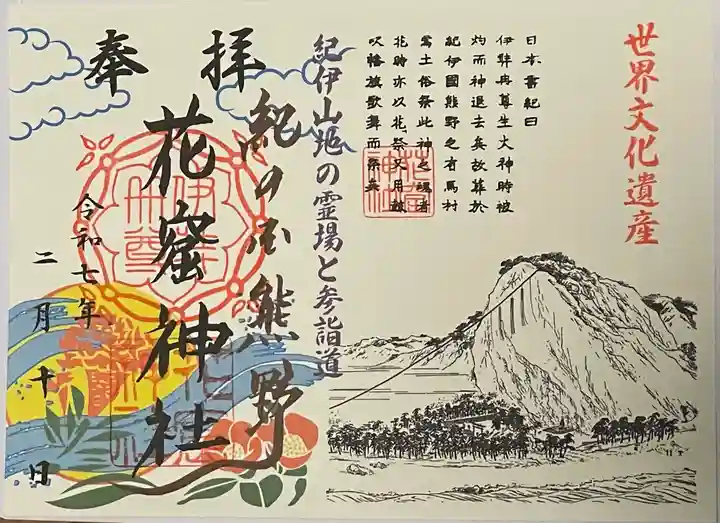 世界文化遺産
日本書紀曰
伊弉冉尊生火神時被
灼而神退去矣故葬於
紀伊國熊野之有馬村
焉土俗祭此神之魂者
花時亦以花祭又用鼓
吹幡旗歌舞而祭矣
花窟神社
紀伊山地の霊場と参詣道
奉拝
紀の国熊野
花窟神社
伊弉冉尊
令和七年
二月十日